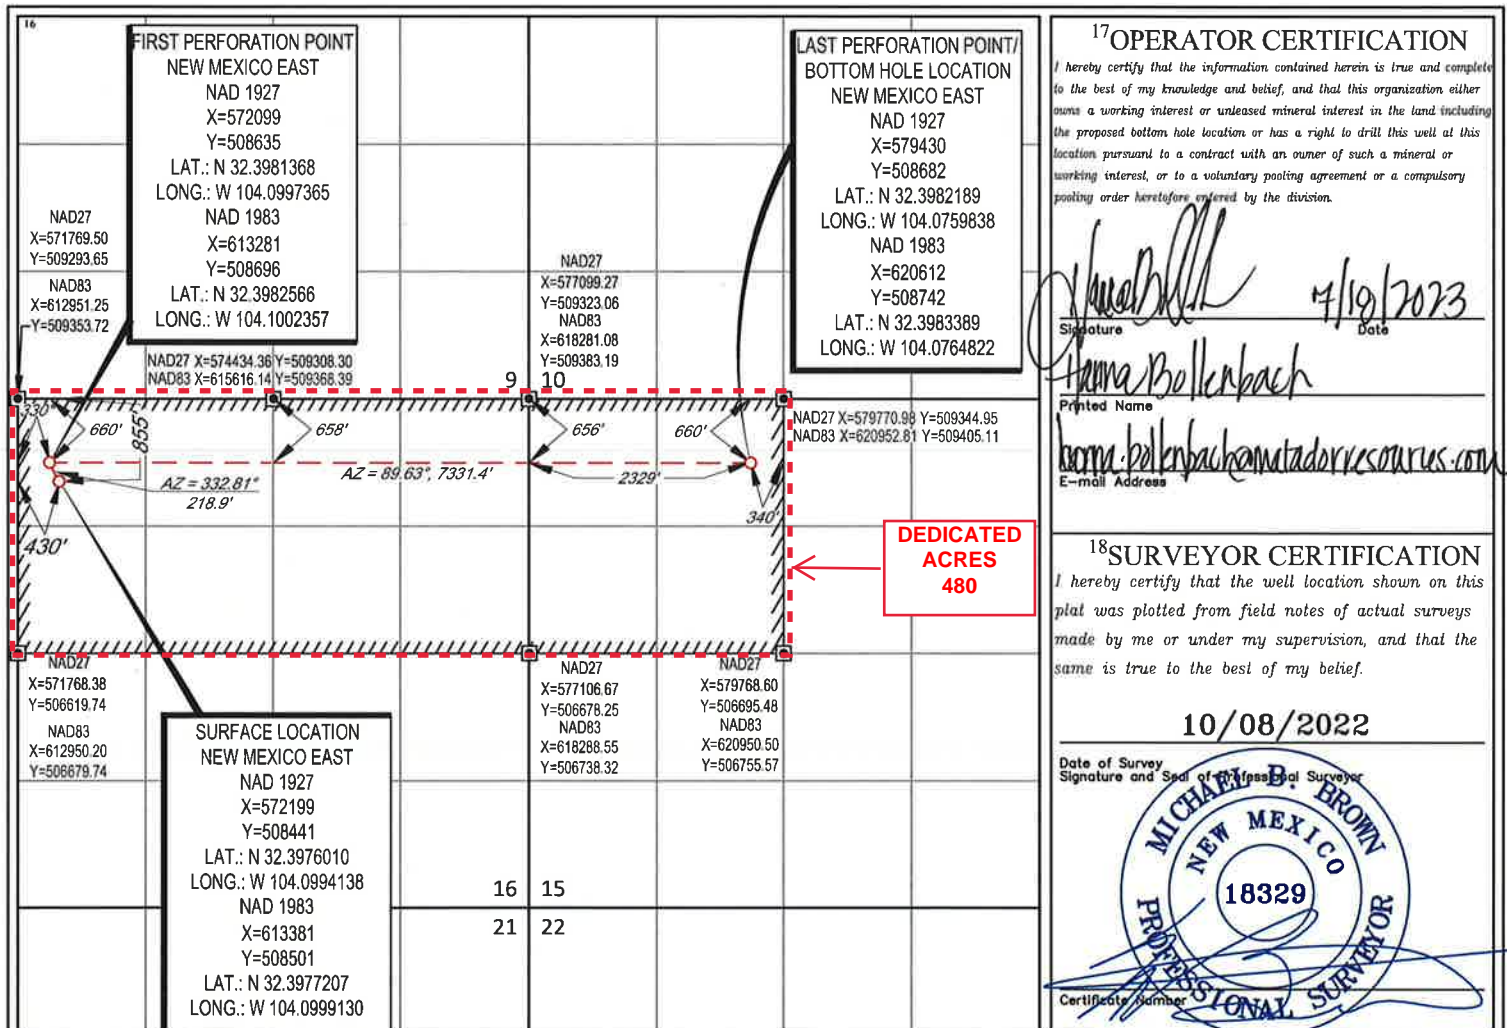 16
FIRST PERFORATION POINT
NEW MEXICO EAST
NAD 1927
X=572099
Y=508635
LAT.: N 32.3981368
LONG.: W 104.0997365
NAD 1983
X=613281
Y=508696
LAT.: N 32.3982566
LONG.: W 104.1002357
LAST PERFORATION POINT/
BOTTOM HOLE LOCATION
NEW MEXICO EAST
NAD 1927
X=579430
Y=508682
LAT.: N 32.3982189
LONG.: W 104.0759838
NAD 1983
X=620612
Y=508742
LAT.: N 32.3983389
LONG.: W 104.0764822
NAD27
X=571769.50
Y=509293.65
NAD83
X=612951.25
Y=509353.72
NAD27
X=577099.27
Y=509323.06
NAD83
X=618281.08
Y=509383.19
NAD27 X=574434.36 Y=509308.30
NAD83 X=615616.14 Y=509368.39
9 10
NAD27 X=579770.98 Y=509344.95
NAD83 X=620952.81 Y=509405.11
330'
660'
855'
658'
656'
660'
AZ = 332.81°
218.9'
AZ = 89.63°, 7331.4'
2329'
340'
430'
DEDICATED
ACRES
480
NAD27
X=571768.38
Y=506619.74
NAD83
X=612950.20
Y=506679.74
NAD27
X=577106.67
Y=506678.25
NAD83
X=618288.55
Y=506738.32
NAD27
X=579768.60
Y=506695.48
NAD83
X=620950.50
Y=506755.57
SURFACE LOCATION
NEW MEXICO EAST
NAD 1927
X=572199
Y=508441
LAT.: N 32.3976010
LONG.: W 104.0994138
NAD 1983
X=613381
Y=508501
LAT.: N 32.3977207
LONG.: W 104.0999130
16 15
21 22
17OPERATOR CERTIFICATION
I hereby certify that the information contained herein is true and complete
to the best of my knowledge and belief, and that this organization either
owns a working interest or unleased mineral interest in the land including
the proposed bottom hole location or has a right to drill this well at this
location pursuant to a contract with an owner of such a mineral or
working interest, or to a voluntary pooling agreement or a compulsory
pooling order heretofore entered by the division.
7/19/2023
Signature Date
Hanna Bollenbach
Printed Name
hanna.bollenbach@matadorresources.com
E-mail Address
18SURVEYOR CERTIFICATION
I hereby certify that the well location shown on this
plat was plotted from field notes of actual surveys
made by me or under my supervision, and that the
same is true to the best of my belief.
10/08/2022
Date of Survey
Signature and Seal of Professional Surveyor
MICHAEL B. BROWN
NEW MEXICO
18329
PROFESSIONAL SURVEYOR
Certificate Number